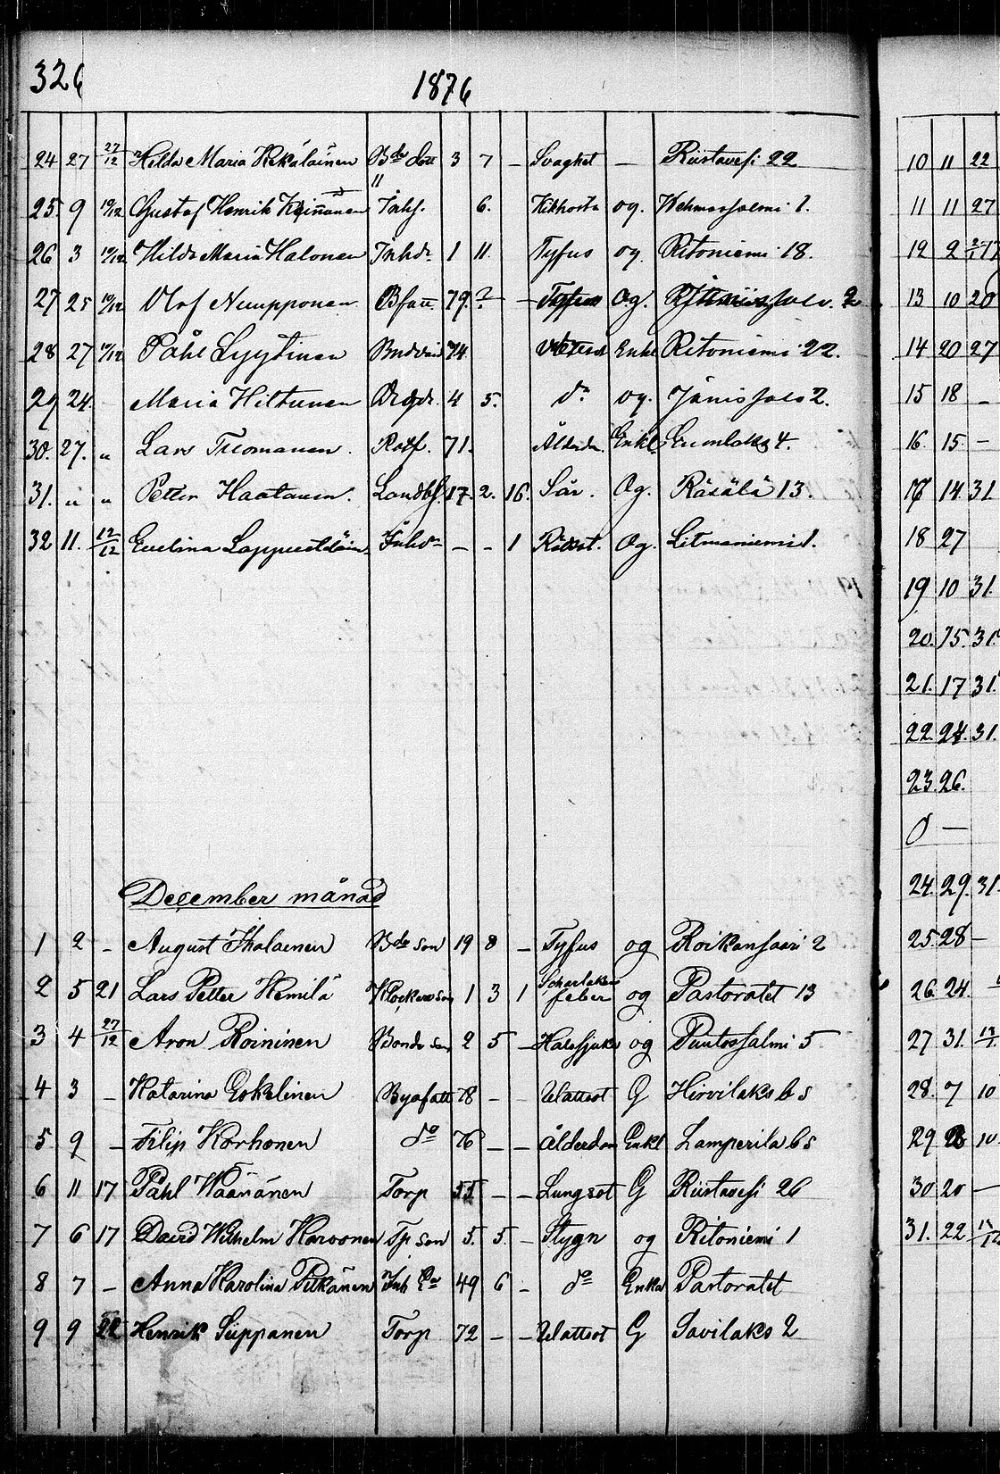 326
1876
24 27 27/12 Hilda Maria Kekäläinen Bde dott 3 7 – Svaghet – Riistavesi 22
25. 9 10/12 Gustaf Henrik Inhs. 6. Kikhosta og. Wehmersalmi 1.
26 3 10/12 Hilda Maria Halonen Inhdr. 1 11. Tyfus og. Ritoniemi 18.
27 25 10/12 Olof Numpponen Bfatt. 79. ? – Tyfus Og. 2
28 27 10/12 Påhl Lyytinen 74. Enkl Ritoniemi 22.
29 24. – Maria Hiltunen Drgdr. 4 5. do og. Jänissalo 2.
30. 27. " Lars Tuomainen. Rotf. 71. Ålderdn. Enkl 4.
31. " " Petter Haatainen. Landbs. 17. 2. 16. Sår. Og. Räsälä 13.
32 11. 12/12 Evelina Inhdr – – 1 Og. Litmaniemi 1.
December månad
1 2 – August Bde son 19 8 – Tyfus og Roikansaari 2
2 5 21 Lars Petter Hemilä Klockare son 1 3 1 Scharlakans feber og Pastoratet 13
3 4 27/12 Aron Roininen Bonde son 2 5 – Halssjuka og Puutossalmi 5
4 3 – Katarina Eskelinen Byafatt 78 – – Wattsot G Hirvilaks b s
5 9 – Filip Korhonen do 76 – – Ålderdom Enkl Lamperila b s
6 11 17 Påhl Wäänänen Torp 55 – – Lungsot G Riistavesi 26
7 6 17 David Wilhelm Karvonen Tp son 5. 5. – Stygn og Ritoniemi 1
8 7 – Anna Karolina Pitkänen Inh Ea 49 6 – do Enka Pastoratet
9 9 22 Henrik Siippanen Torp 72 – – Wattsot G Savilaks 2
10 11 22
11 11 27
12 2
13 10 20
14 20 27
15 18 –
16. 15 –
17 14. 31
18 27
19 10 31.
20. 15. 31.
21. 17 31.
22. 24. 31.
23. 26.
0 –
24. 29. 31.
25 28 –
26. 24.
27 31.
28. 7 10
29 28 10.
30 20 –
31. 22